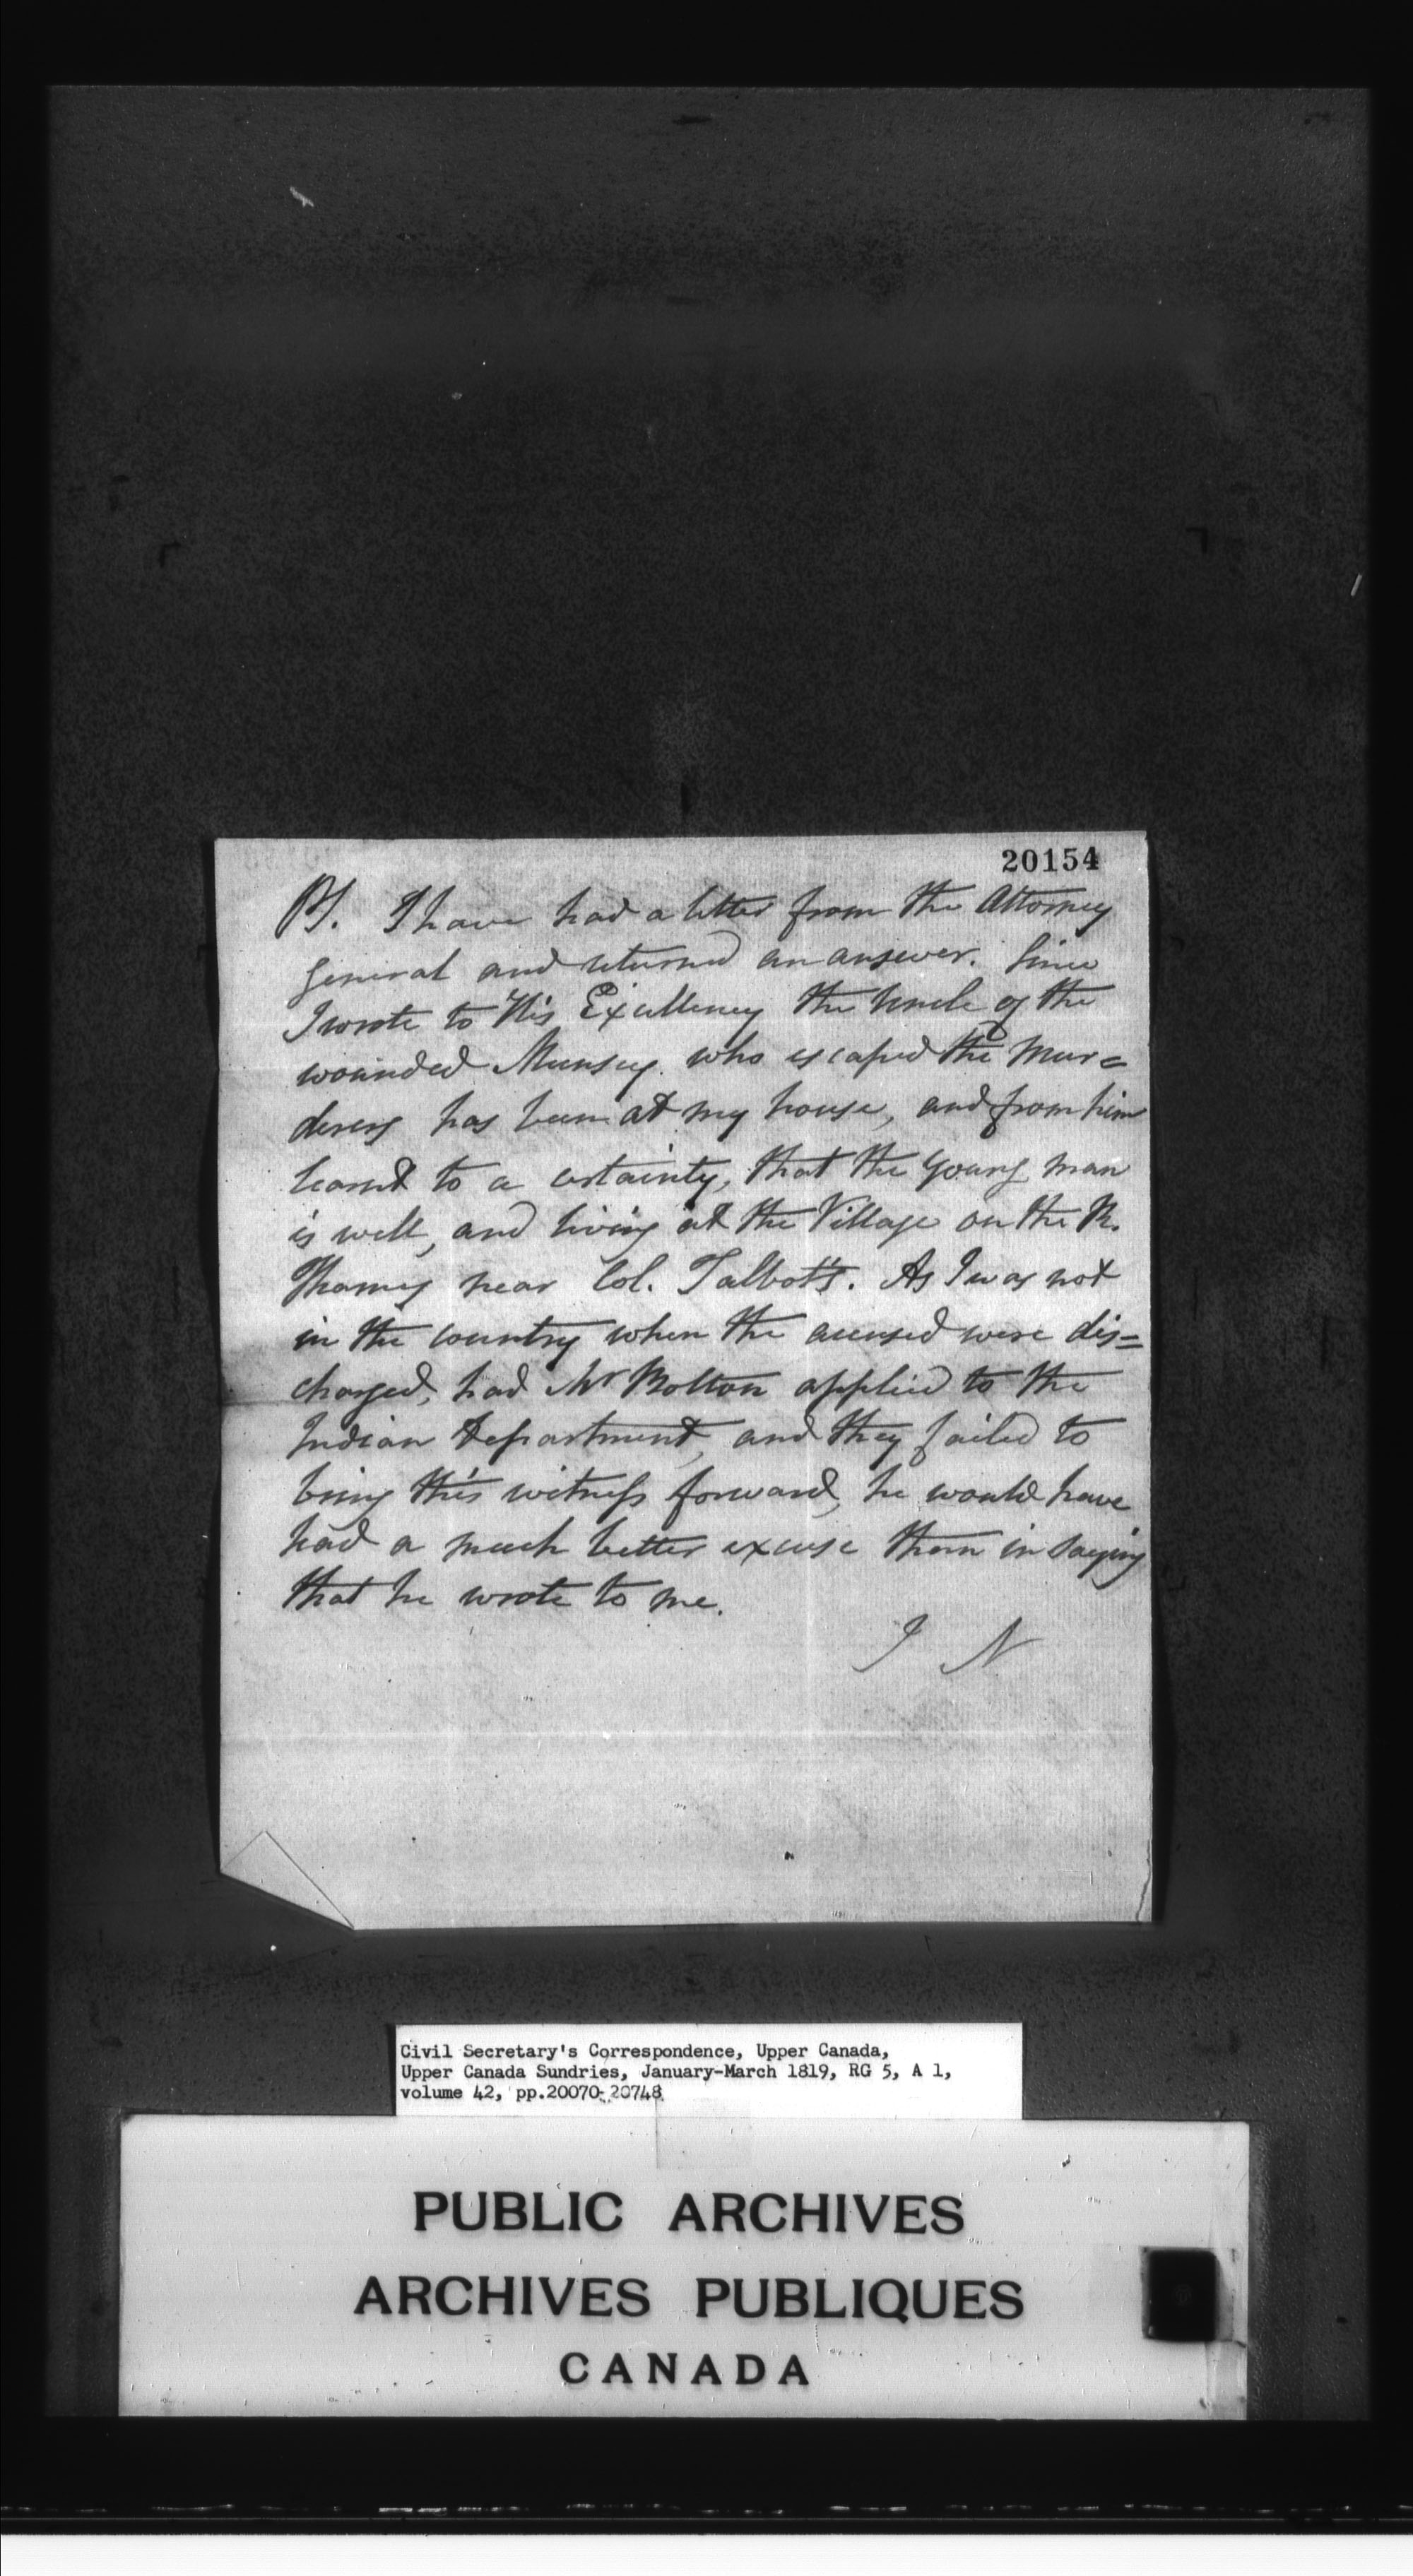 20154
PS. I have had a letter from the Attorney
General and returned an answer. Since
I wrote to His Excellency the Uncle of the
wounded Munsey who escaped the Mur=
derers has been at my house, and from him
learnt to a certainty, that the young man
is well, and living at the Village on the R.
Thames near Col. Talbot's. As I was not
in the country when the accused were dis=
charged, had Mr Bolton applied to the
Indian Department, and they failed to
bring this witness forward, he would have
had a much better excuse than in saying
that he wrote to me.
J N
Civil Secretary's Correspondence, Upper Canada,
Upper Canada Sundries, January-March 1819, RG 5, A 1,
volume 42, pp.20070-20748
PUBLIC ARCHIVES
ARCHIVES PUBLIQUES
CANADA